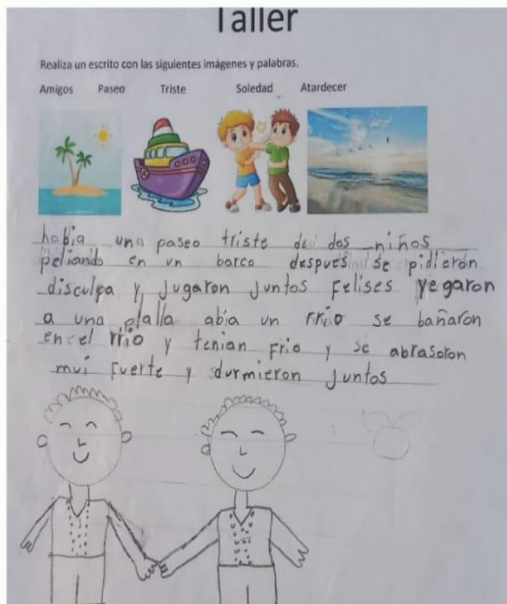 Taller
Realiza un escrito con las siguientes imágenes y palabras.
Amigos Paseo Triste Soledad Atardecer
había una paseo triste de dos niños
peliando en un barco después se pidierón
disculpa y jugaron juntos felises yegaron
a una plalla abía un rrio se bañaron
en el rrio y tenian frio y se abrasoron
mui fuerte y durmieron juntos